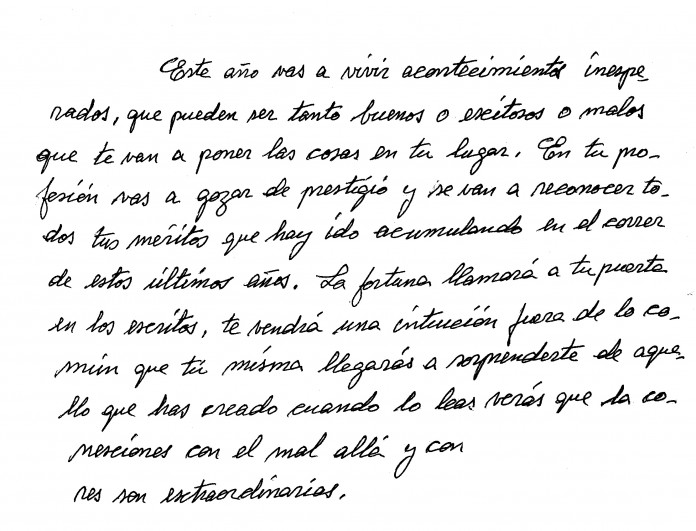 Este año vas a vivir acontecimientos inespe
rados, que pueden ser tanto buenos o exitosos o malos
que te van a poner las cosas en tu lugar. En tu pro-
fesión vas a gozar de prestigio y se van a reconocer to-
dos tus méritos que hay ido acumulando en el correr
de estos últimos años. La fortuna llamará a tu puerta
en los escritos, te vendrá una intuición fuera de lo co-
mún que tú misma llegarás a sorprenderte de aque-
llo que has creado cuando lo leas verás que la co-
nexciones con el mal allá y con
res son extraordinarias.